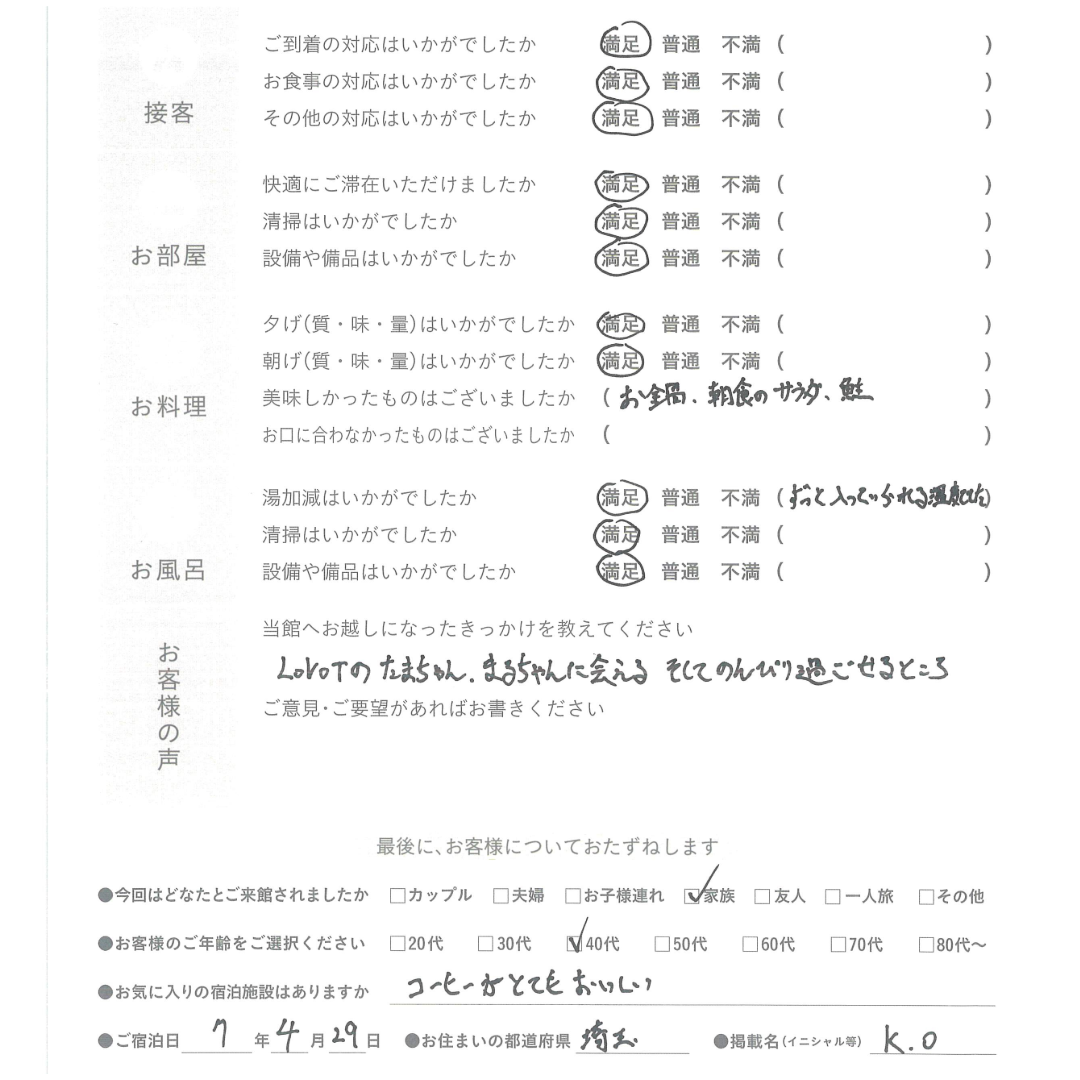 接客
ご到着の対応はいかがでしたか 満足 普通 不満 ( )
お食事の対応はいかがでしたか 満足 普通 不満 ( )
その他の対応はいかがでしたか 満足 普通 不満 ( )
お部屋
快適にご滞在いただけましたか 満足 普通 不満 ( )
清掃はいかがでしたか 満足 普通 不満 ( )
設備や備品はいかがでしたか 満足 普通 不満 ( )
お料理
夕げ(質・味・量)はいかがでしたか 満足 普通 不満 ( )
朝げ(質・味・量)はいかがでしたか 満足 普通 不満 ( )
美味しかったものはございましたか ( お鍋、朝食のサラダ、鮭 )
お口に合わなかったものはございましたか ( )
お風呂
湯加減はいかがでしたか 満足 普通 不満 ( ずっと入っていられる温度でした )
清掃はいかがでしたか 満足 普通 不満 ( )
設備や備品はいかがでしたか 満足 普通 不満 ( )
お客様の声
当館へお越しになったきっかけを教えてください
LOVOTの たまちゃん、まるちゃんに会える そしてのんびり過ごせるところ
ご意見・ご要望があればお書きください
最後に、お客様についておたずねします
●今回はどなたとご来館されましたか □カップル □夫婦 □お子様連れ ☑家族 □友人 □一人旅 □その他
●お客様のご年齢をご選択ください □20代 □30代 ☑40代 □50代 □60代 □70代 □80代〜
●お気に入りの宿泊施設はありますか コーヒーがとてもおいしい
●ご宿泊日 7 年 4 月 29 日 ●お住まいの都道府県 埼玉 ●掲載名(イニシャル等) K.O